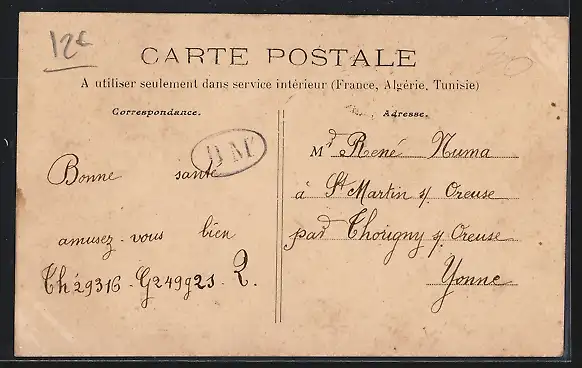 12€
30
CARTE POSTALE
A utiliser seulement dans service intérieur (France, Algérie, Tunisie)
Correspondance.
Adresse.
BM
Bonne santé
amusez-vous bien
Th'29316-G249g2s-R.
Md René Numa
à St Martin s/ Oreuse
par Thorigny s/ Oreuse
Yonne